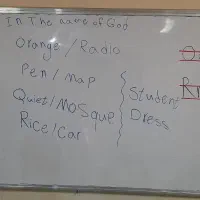 In The name of God
Orange / Radio
Pen / Map
Quiet / MOSque
Rice / Car
Student
Dress